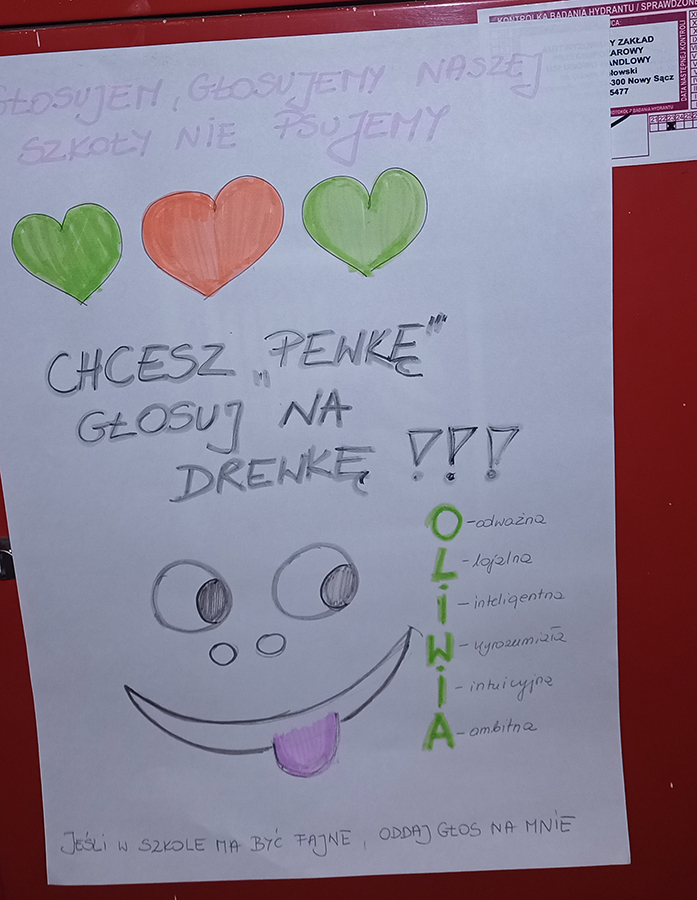 KONTROLKA BADANIA HYDRANTU / SPRAWDZONE
Y ZAKŁAD
AROWY
ANDLOWY
łowski
-300 Nowy Sącz
5477
DATA NASTĘPNEJ KONTROLI
GŁOSUJEM, GŁOSUJEMY NASZEJ
SZKOŁY NIE PSUJEMY
CHCESZ „PEWKĘ”
GŁOSUJ NA
DREWKĘ !!!
O - odważna
L - lojalna
I - inteligentna
W - wyrozumiała
I - intuicyjna
A - ambitna
JEŚLI W SZKOLE MA BYĆ FAJNE, ODDAJ GŁOS NA MNIE